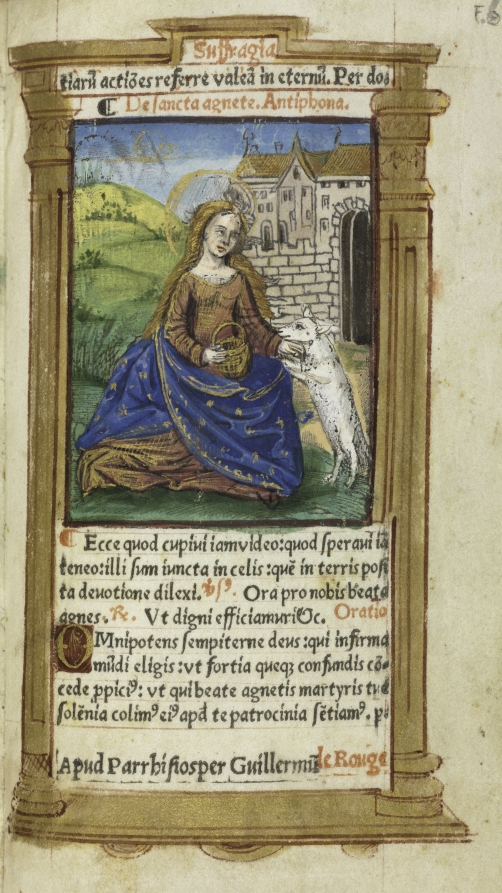 F.6
Suffragia
tiarū actiões referre valeā in eternū. Per do
De sancta agnete. Antiphona.
Ecce quod cupiui iam video: quod speraui iā
teneo: illi sum iuncta in celis: quē in terris posi
ta deuotione dilexi. Ora pro nobis beata
agnes. ℟. Vt digni efficiamur ⁊c. Oratio
OMnipotens sempiterne deus: qui infirma
mūdi eligis: vt fortia queqꝫ confundis cō-
cede ꝓpiciꝰ: vt qui beate agnetis martyris tue
solēnia colimꝰ eiꝰ apd te patrocinia sētiamꝰ. p
Apud Parrhisios per Guillermū le Rouge